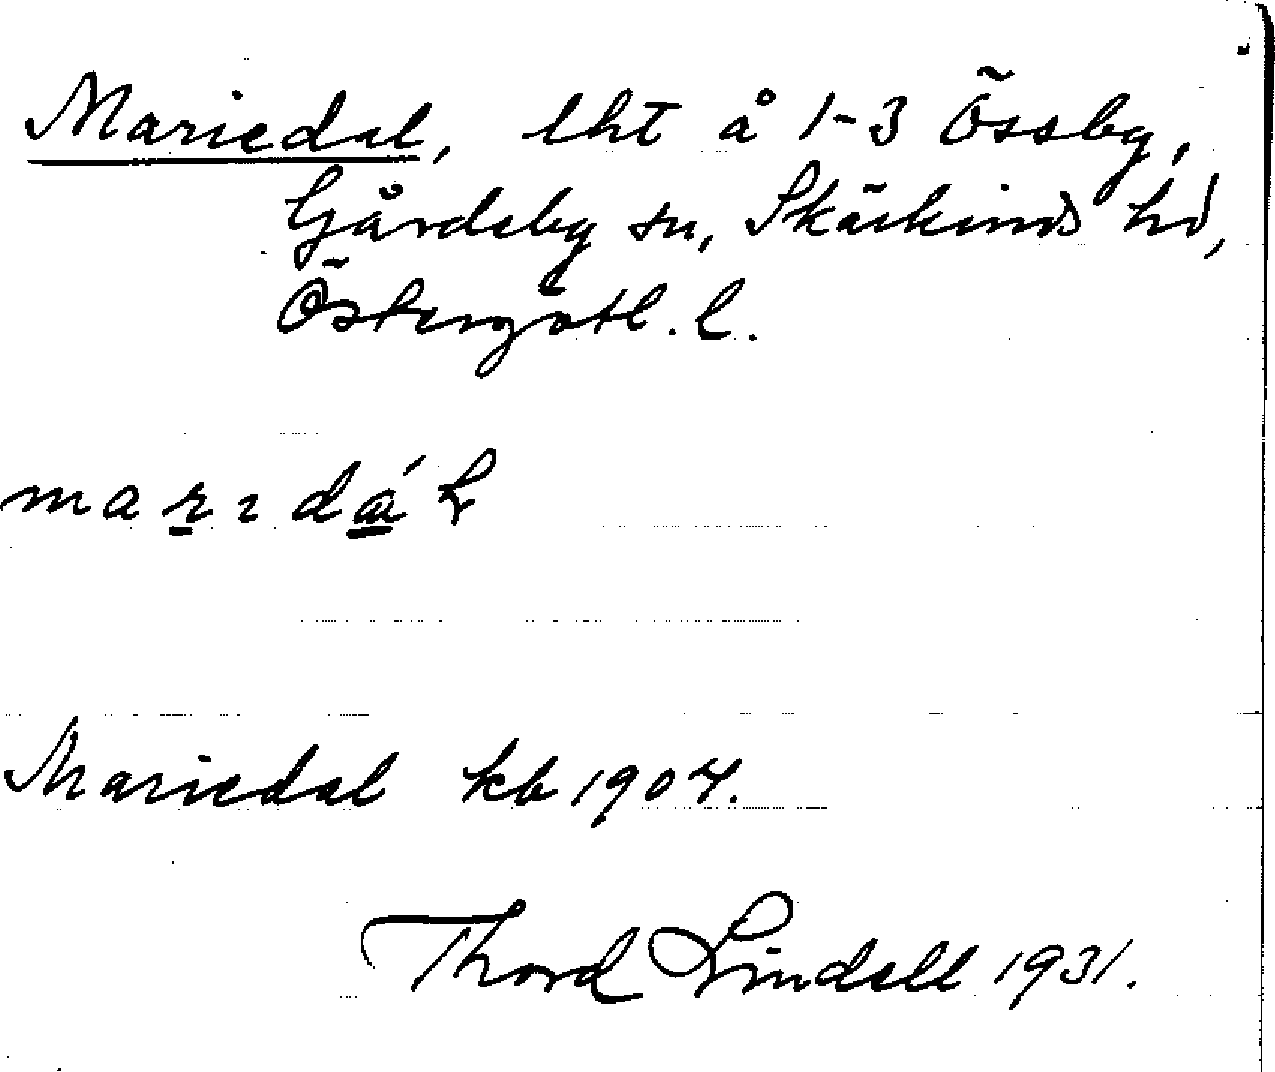 Mariedal, lht å 1-3 Össby,
Gårdeby sn, Skärkinds hd,
Östergötl. l.
marɩdáɫ
Mariedal kb 1904.
Thord Lindell 1931.